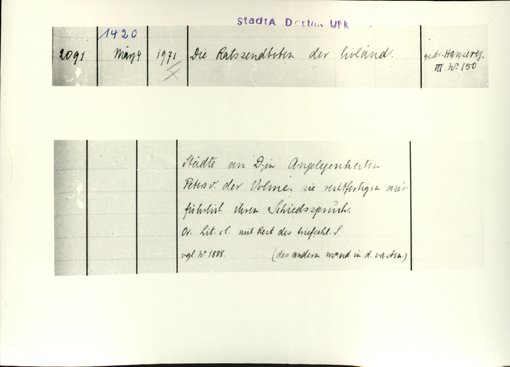 StadtA Dortm. URK
1420
2091 März 4 1971 Die Ratssendboten der livländ. gedr. Hanserez.
III. No 150
Städte an D; in Angelegenheiten
Peters v. der Volme; sie rechtfertigen aus-
führlich ihren Schiedsspruch.
Or. Lit. cl. mit Rest des briefschl. S
vgl. No 1888. (des andern mand in d. vasten.)